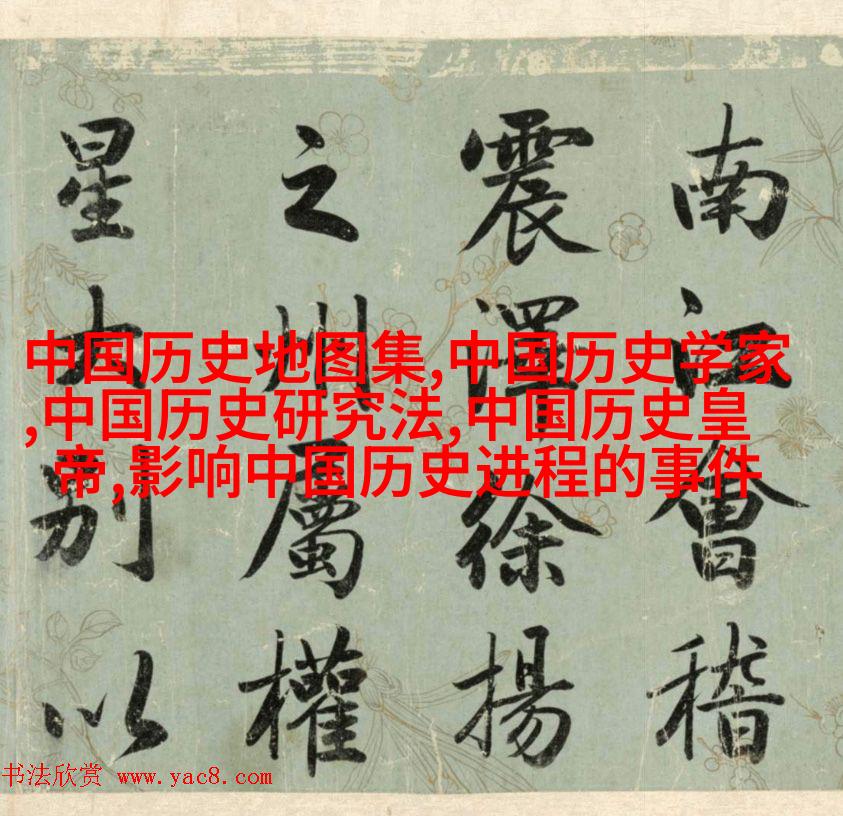 南江會稽
震澤徐揚
之州屬權
星別以
中国历史地图集,中国历史学家
,中国历史研究法,中国历史皇
帝,影响中国历史进程的事件
书法欣赏 www.yac8.com